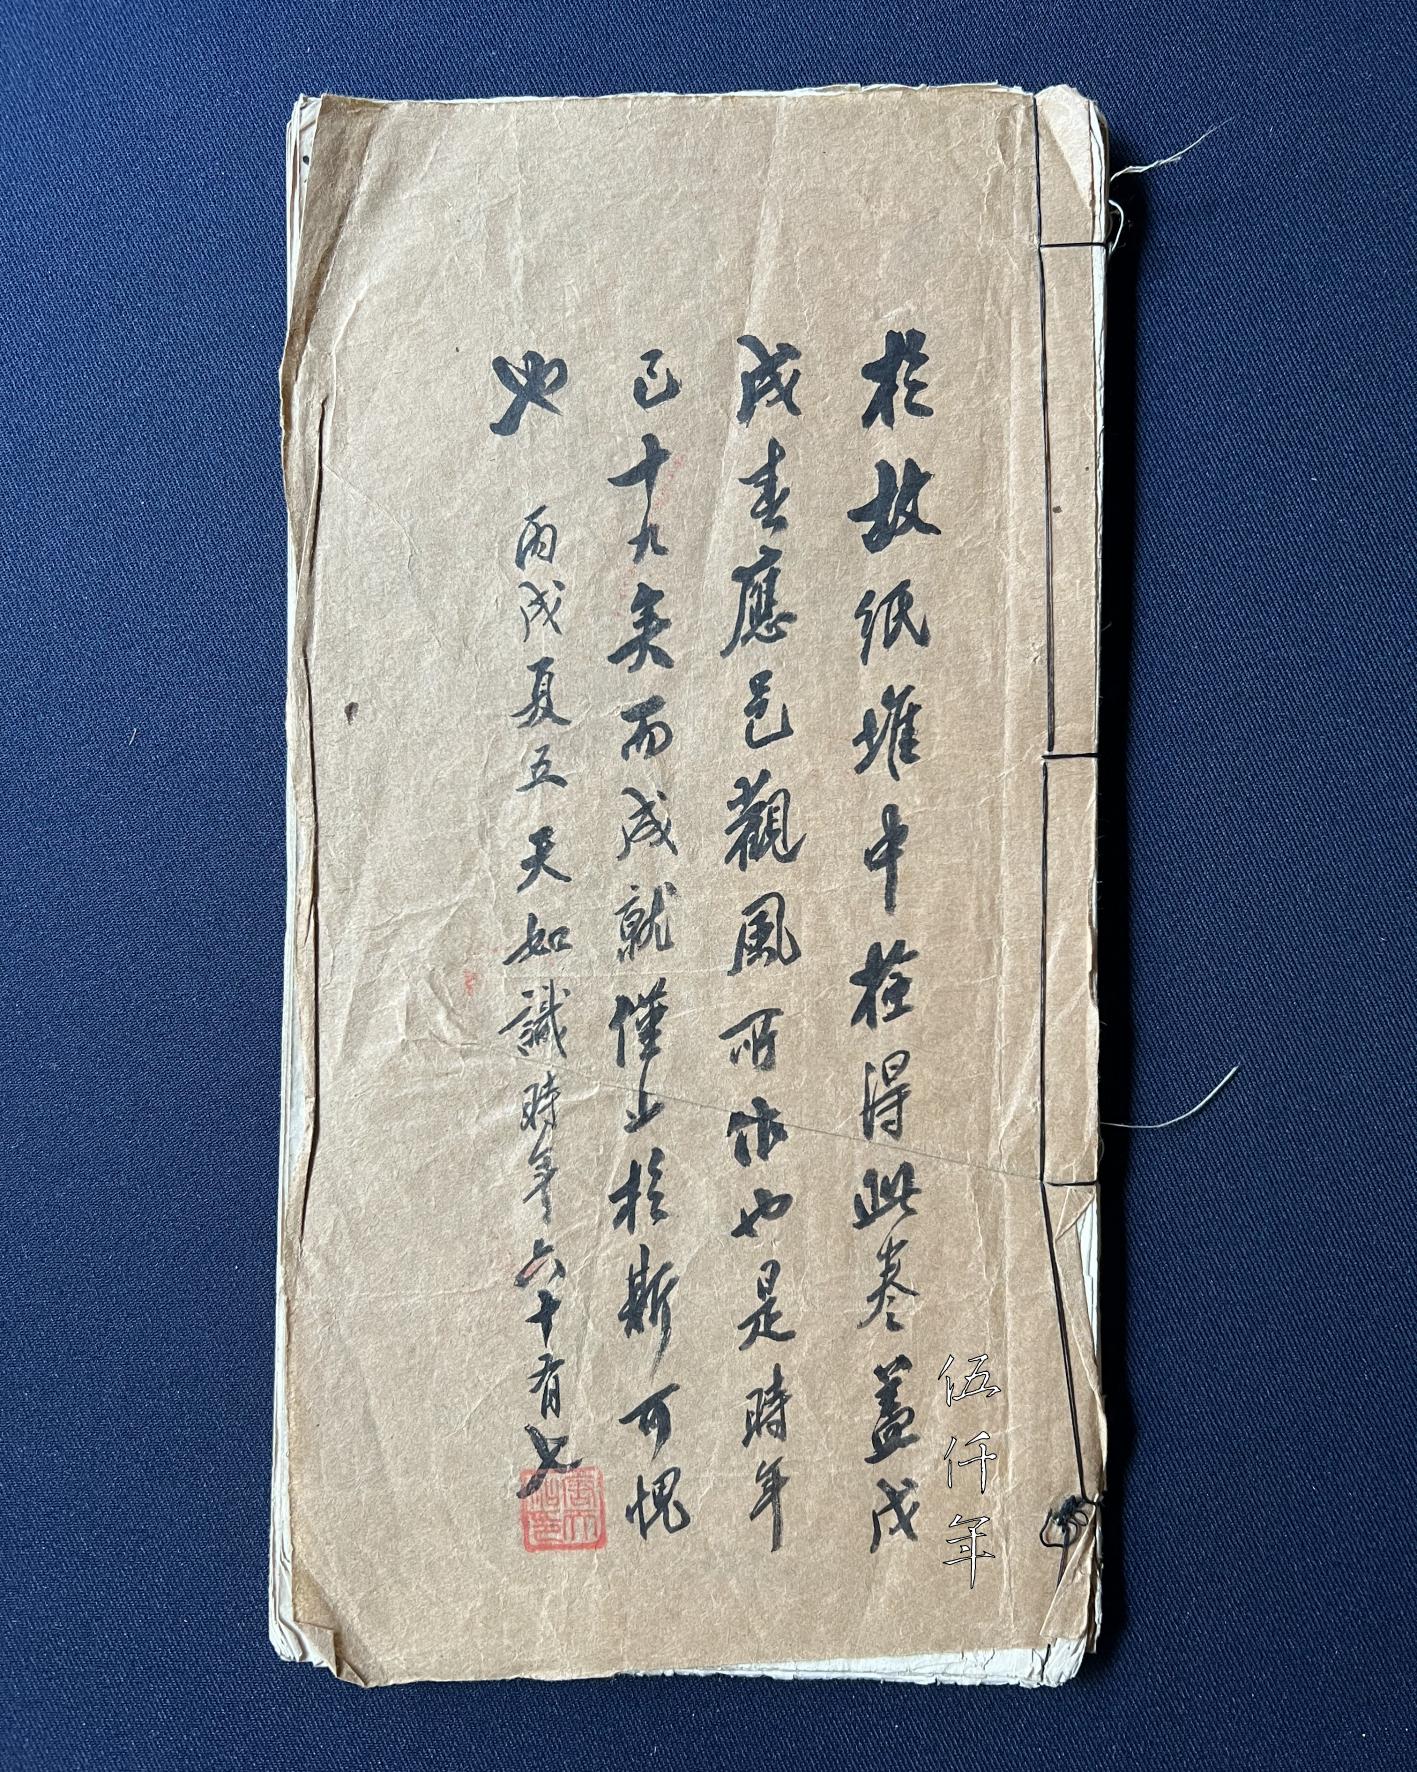 於故紙堆中撿得此卷蓋戊
戌春應邑觀風所作也是時年
已十九矣而成就僅止於斯可愧
也
丙戌夏五天如識時年六十有七
伍仟年